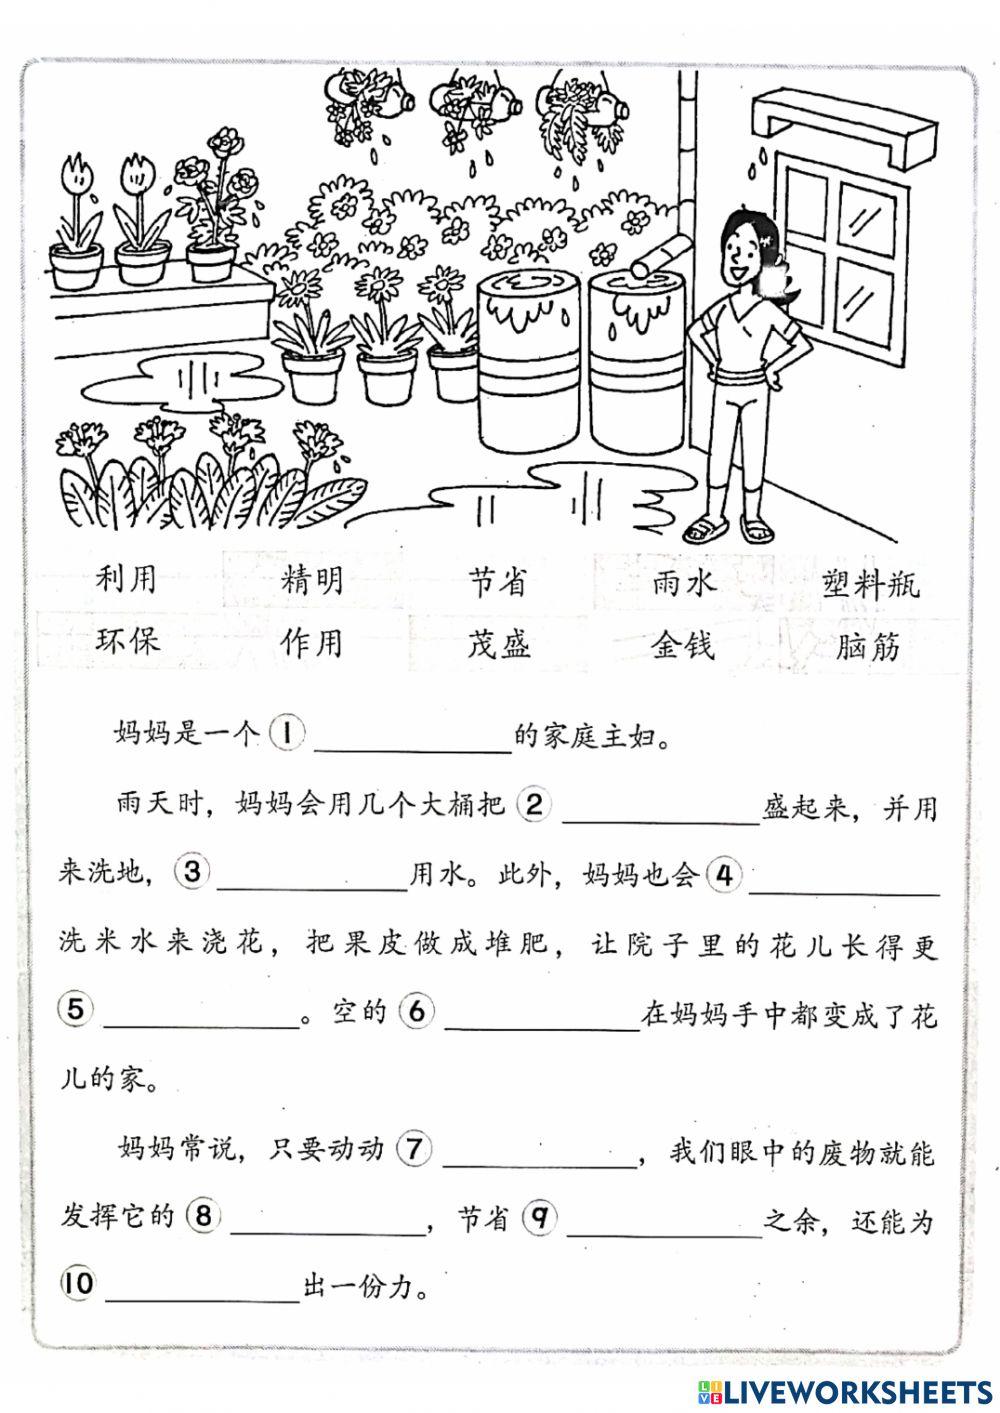 利用 精明 节省 雨水 塑料瓶
环保 作用 茂盛 金钱 脑筋
妈妈是一个 1 ____________ 的家庭主妇。
雨天时，妈妈会用几个大桶把 2 ____________ 盛起来，并用
来洗地，3 ____________ 用水。此外，妈妈也会 4 ____________
洗米水来浇花，把果皮做成堆肥，让院子里的花儿长得更
5 ____________ 。空的 6 ____________ 在妈妈手中都变成了花
儿的家。
妈妈常说，只要动动 7 ____________ ，我们眼中的废物就能
发挥它的 8 ____________ ，节省 9 ____________ 之余，还能为
10 ____________ 出一份力。
LIVE LIVEWORKSHEETS